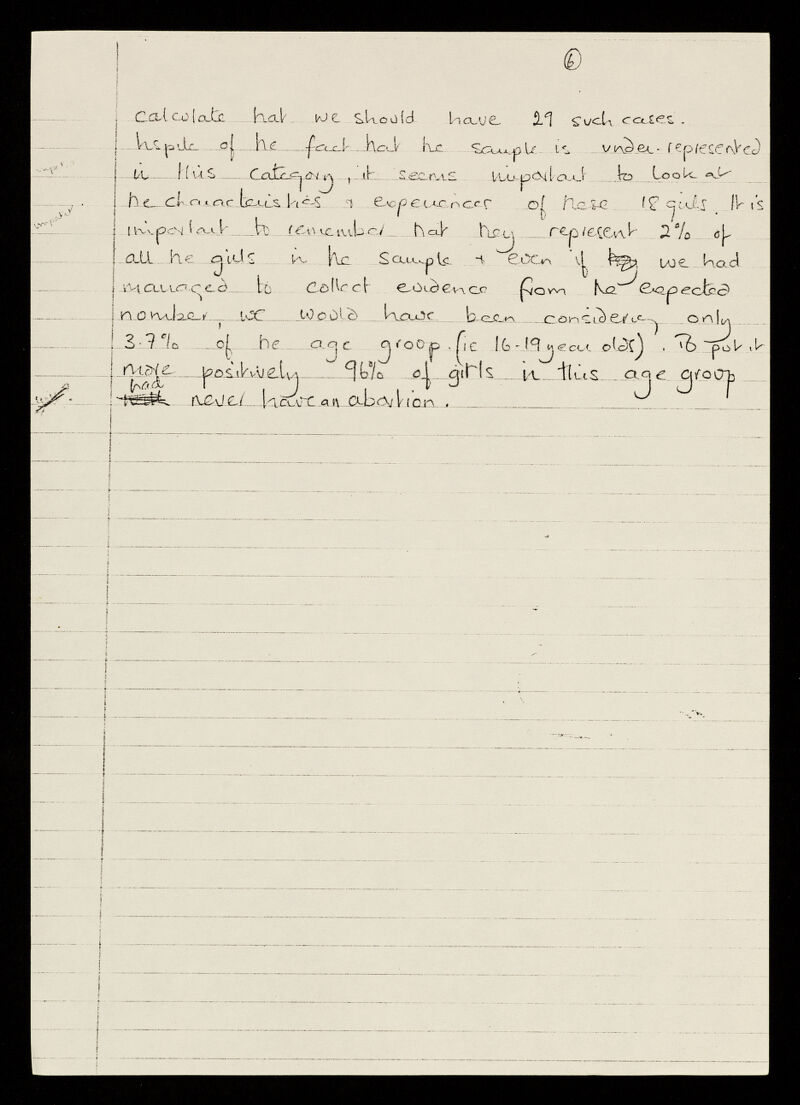 6
calculate that we should have 29 such cases.
Inspite of the fact that the sample is under-represented
in this category, it seems important to look at
the characteristics & experiences of these 18 girls. It is
important to remember that they represent 2% of
all the girls in the sample & even if we had
managed to collect evidence from the expected
number, we would have been considering only
3.7% of the age group (ie 16-19 year olds). To put it
more positively 96% of girls in this age group
had never have an abortion.